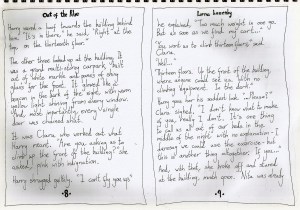 Out of the Blue
Harry waved a hand towards the building behind
him. "It's in there," he said. "Right at the
top, on the thirteenth floor."
The other three looked up at the building. It
was a grand multi-storey carpark, built
out of white marble with panes of shiny
glass for the front. It glowed like a
in the dark of the night, with warm
yellow light shining from every window.
And, most importantly, every single
door was closed shut.
It was Clara who worked out what
Harry meant. "Are you asking us to
climb up the front of the building?" she
asked, pink with indignation.
Harry shrugged guiltily. "I can't fly you up"
-8-
he explained. "Too much weight in one go.
But as soon as we find my cart..."
"You want us to climb thirteen floors" said
Clara.
"Well..."
"Thirteen floors. Up the front of the building
where anyone could see us, with no
climbing equipment. In the dark."
Harry gave her his saddest look. "Please?"
Clara sighed. "I don't know what to make
of you, really I don't. It's one thing
to call us all out of our beds in the
middle of the night with no explanation - I
we could use the exercise - but
this is another thing altogether. If you..."
And, with that, she broke off and stared
at the building, mouth open. Nila was already
-9-